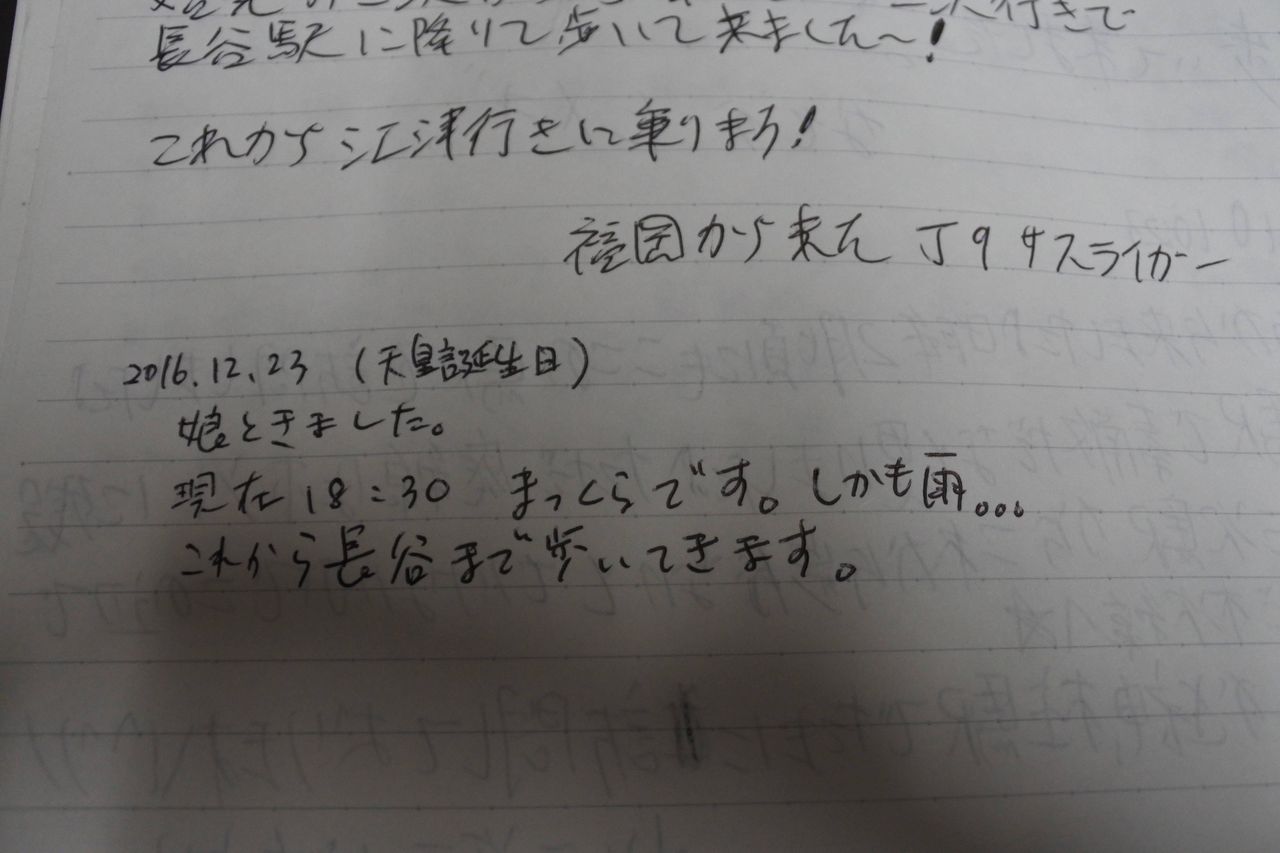 行きで
長谷駅に降りて歩いて来ました〜!
これから江津行きに乗りまろ!
福岡から来た J9サスライガー
2016.12.23 (天皇誕生日)
娘ときました。
現在18:30 まっくらです。しかも雨...
これから長谷まで歩いてきます。